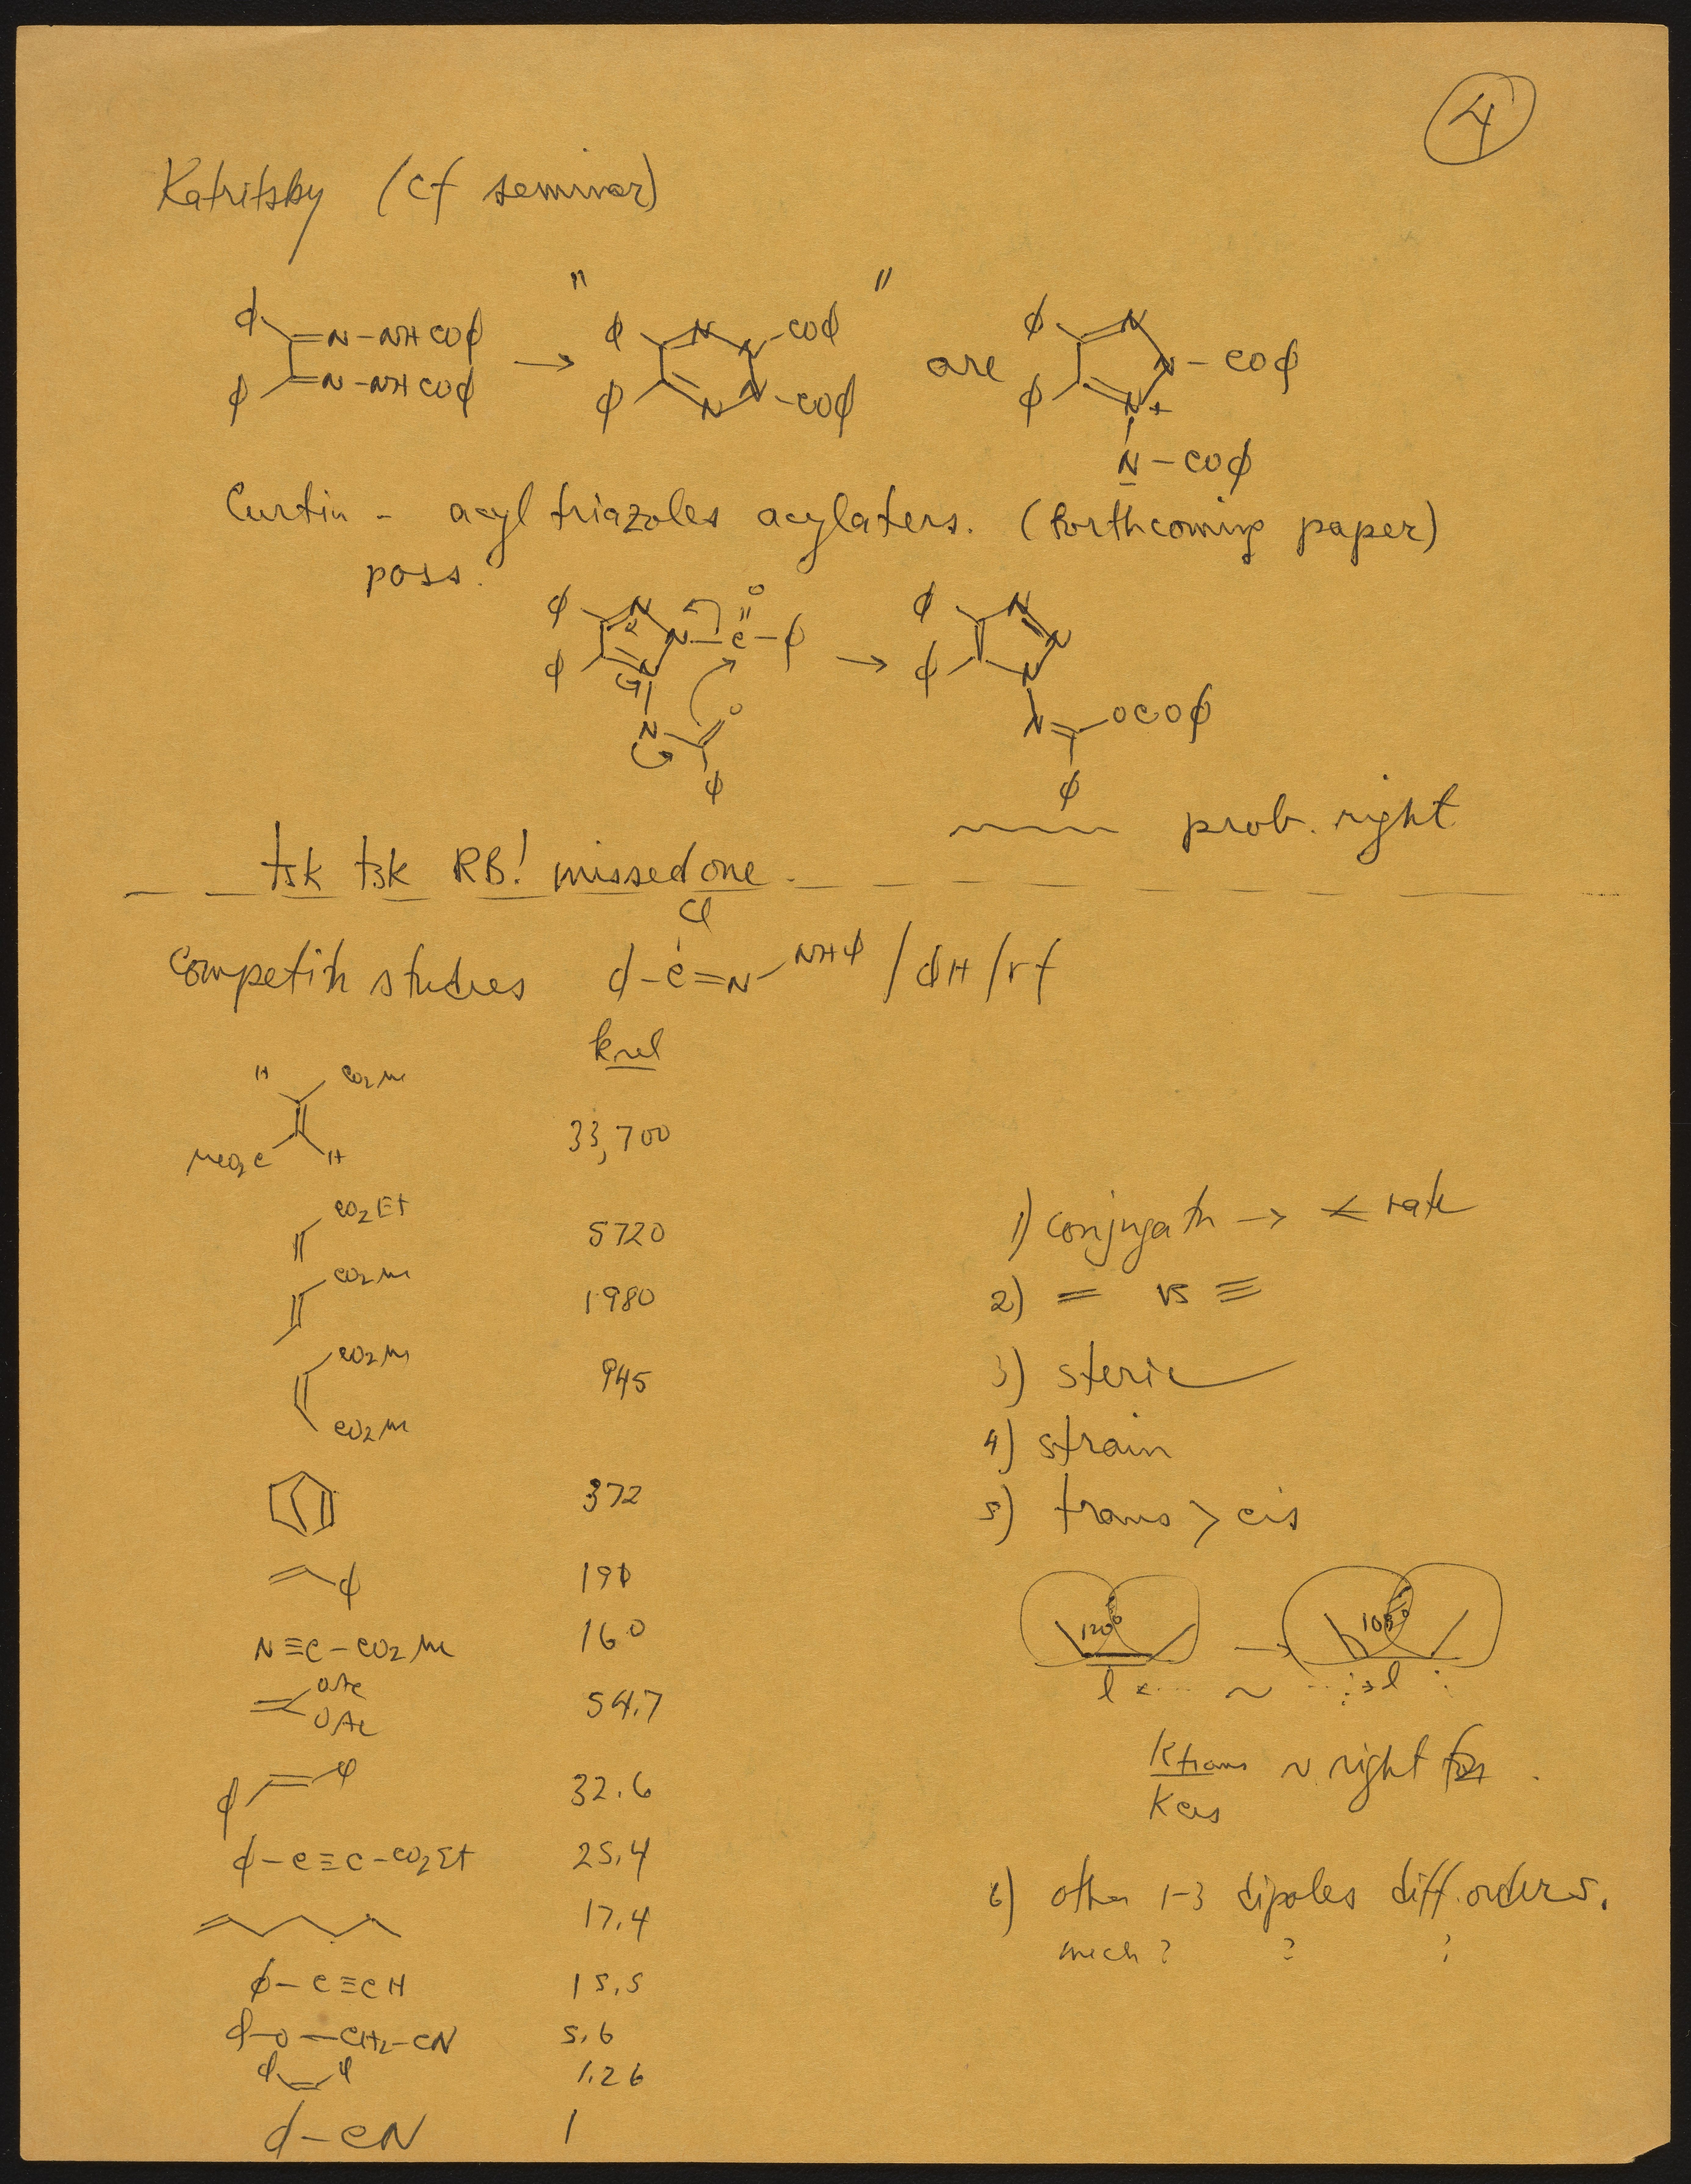 4
Katritsky (cf seminar)
" "
ϕ =N-NHCOϕ → ϕ N N-COϕ are ϕ N N-COϕ
ϕ =N-NHCOϕ ϕ N N-COϕ ϕ N+
N-COϕ
Curtin - acyl triazoles acylaters. (forthcoming paper)
poss.
ϕ N N-C-ϕ O → ϕ N N
ϕ N ϕ N
N O N OCOϕ
ϕ ϕ
prob. right
tsk tsk RB! missed one.
Cl
Competitn studies ϕ-C=N NHϕ / ϕH / rf
krel
H CO2Me
MeO2C H 33,700
CO2Et 5720
CO2Me 1980
CO2Me
CO2Me 945
372
ϕ 191
N≡C-CO2Me 160
OAc
OAc 54.7
ϕ ϕ 32.6
ϕ-C≡C-CO2Et 25.4
17.4
ϕ-C≡CH 15.5
ϕ-O-CH2-CN 5.6
ϕ ϕ 1.26
ϕ-CN 1
1) conjugatn → < rate
2) = vs ≡
3) steric
4) strain
5) trans > cis
120° → 108°
l ~ l
Ktrans ~ right for
Kcis
6) other 1-3 dipoles diff. orders.
mech ? ? ?